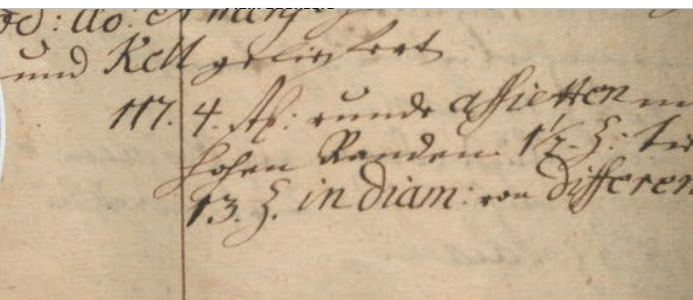 und Kelt geliefert
117. 4. St: runde assietten m
hohen Randen. 1½. Z: tie
13. Z. in diam: von differen